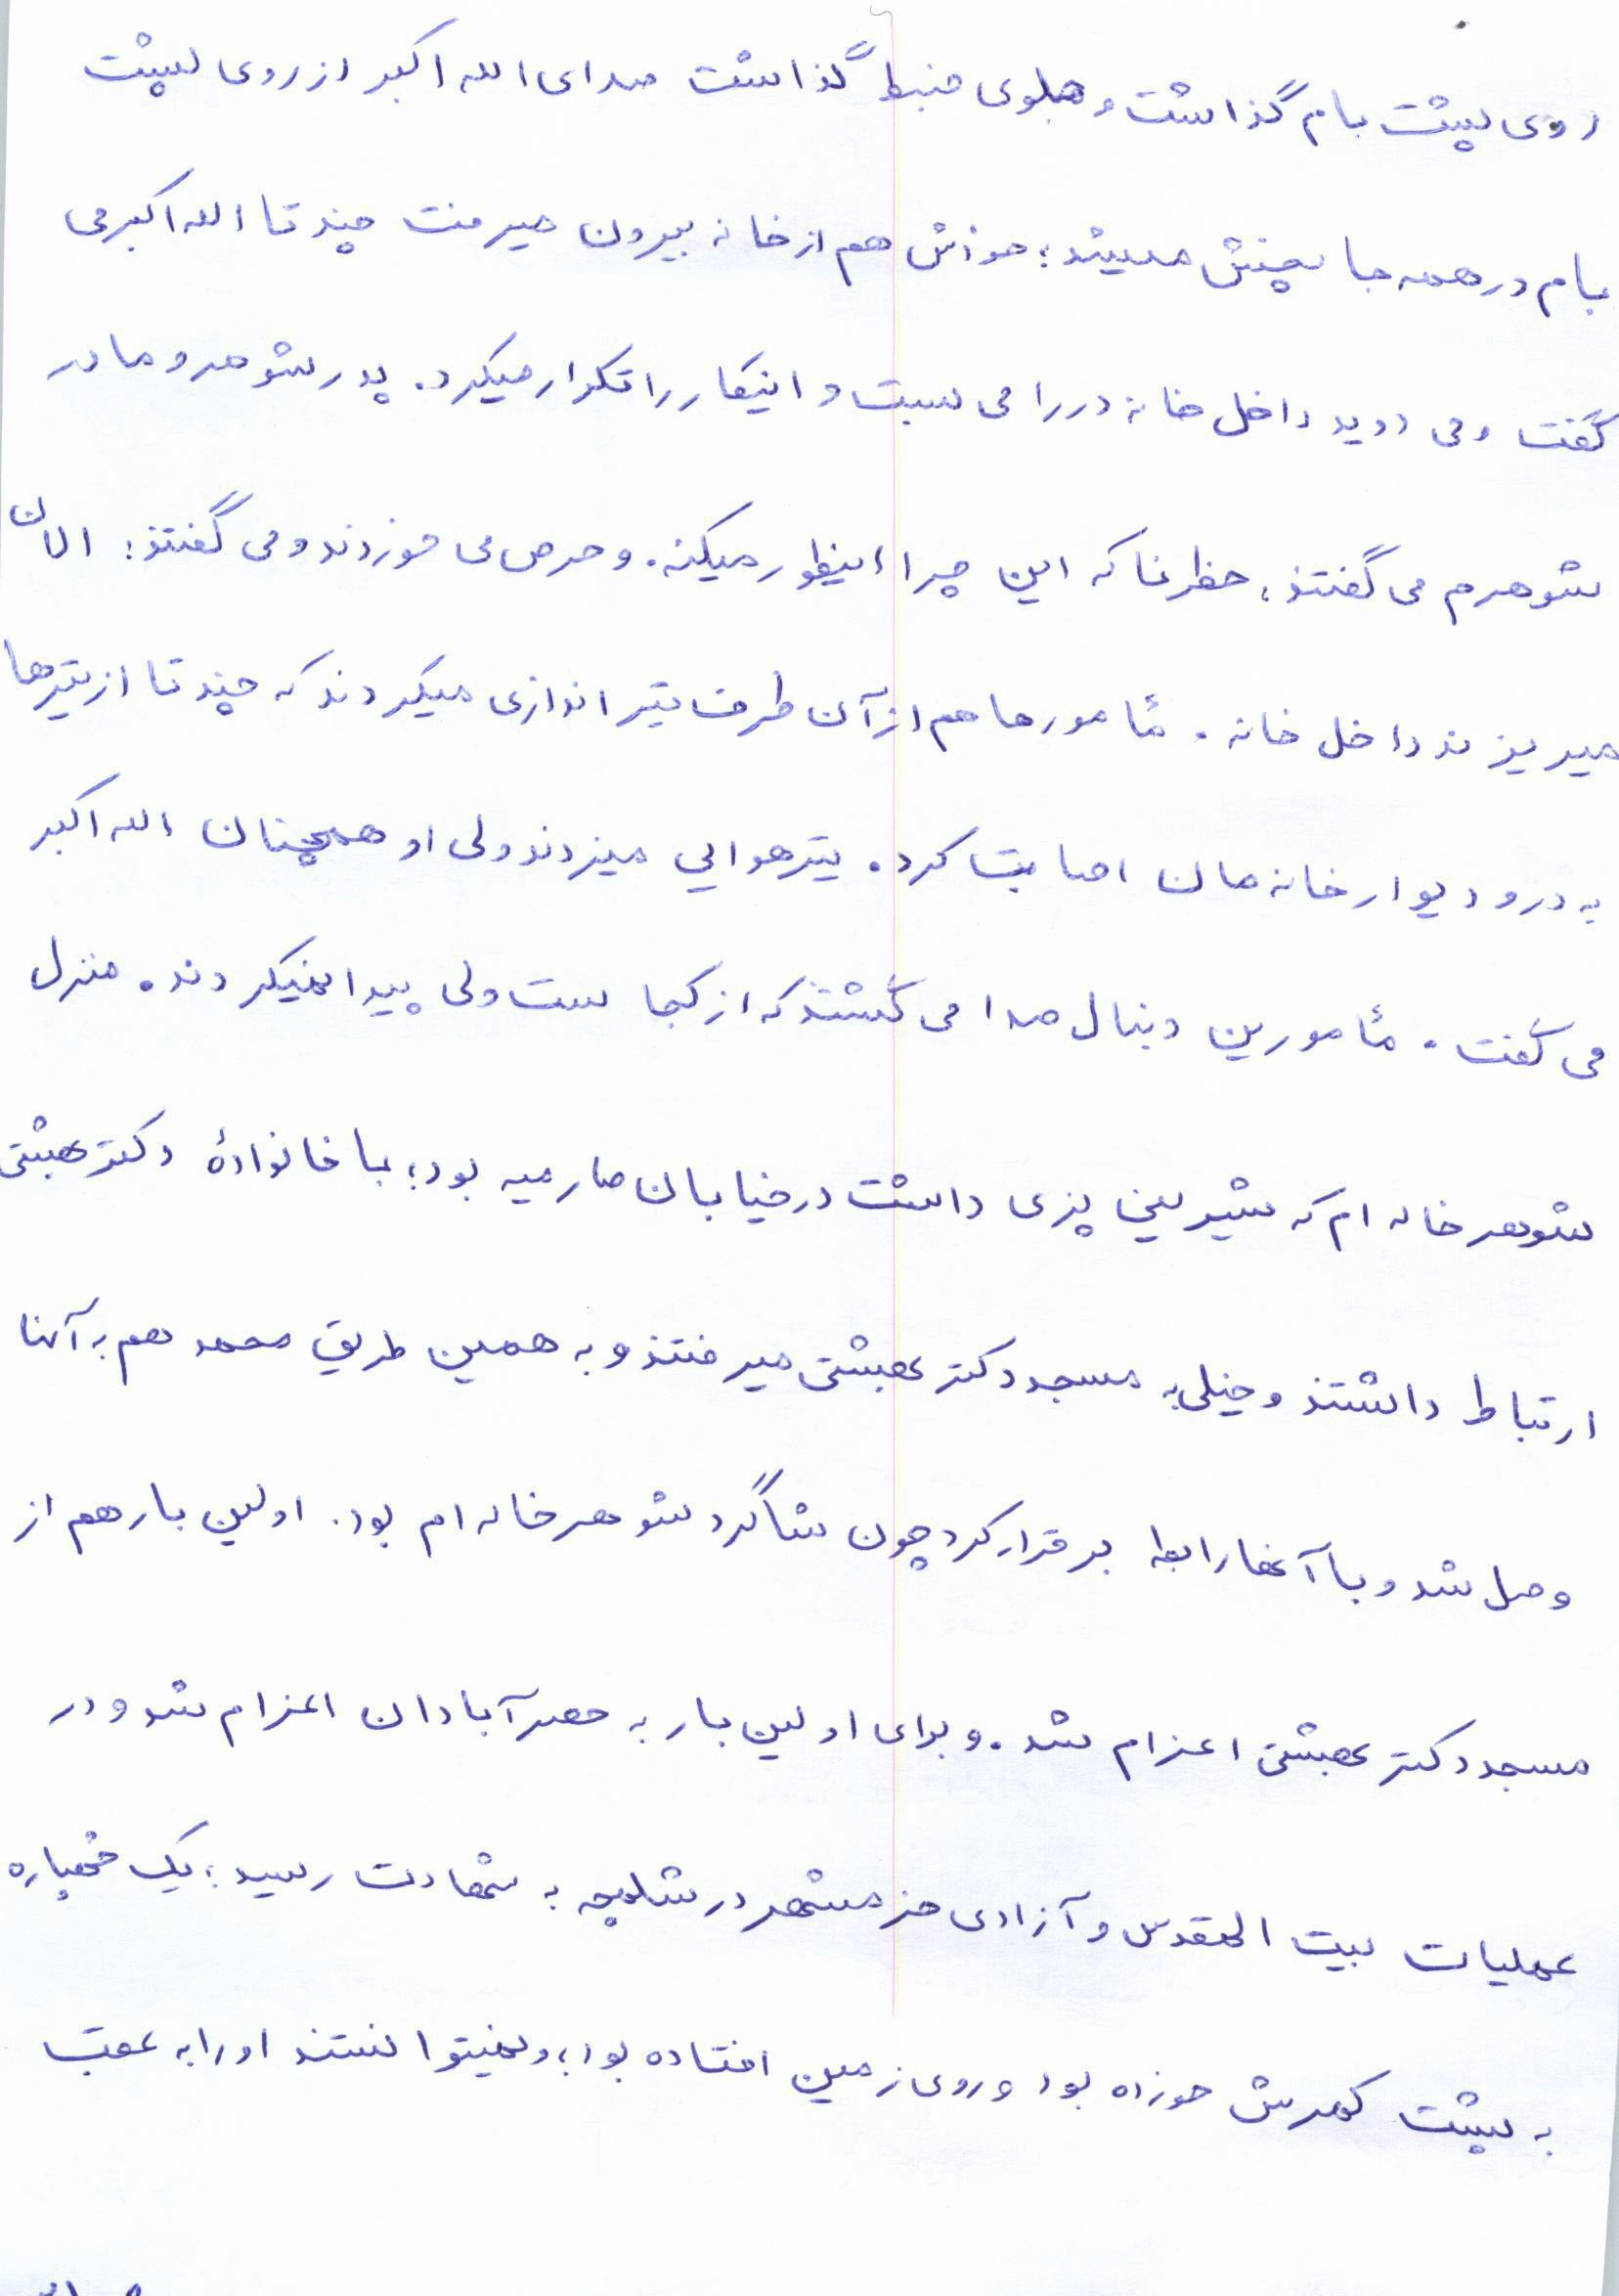 روی پشت بام گذاشت و جلوی ضبط گذاشت صدای الله اکبر از روی پشت
بام در همه جا پخش میشد؛ خودش هم از خانه بیرون میرفت چند تا الله اکبر می
گفت و می دوید داخل خانه در را می بست و اینکار را تکرار میکرد. پدر شوهر و مادر
شوهرم می گفتند، خطرناکه این چرا اینطور میکنه. و حرص می خوردند و می گفتند: الان
میریزند داخل خانه. مأمورها هم از آن طرف تیر اندازی میکردند که چند تا از تیرها
به در و دیوار خانه مان اصابت کرد. تیر هوایی میزدند ولی او همچنان الله اکبر
می گفت. مأمورین دنبال صدا می گشتند که از کجا ست ولی پیدا نمیکردند. منزل
شوهر خاله ام که شیرینی پزی داشت در خیابان صارمیه بود؛ با خانوادۀ دکتر بهشتی
ارتباط داشتند و خیلی به مسجد دکتر بهشتی میرفتند و به همین طریق محمد هم به آنها
وصل شد و با آنها رابطه برقرار کرد چون شاگرد شوهر خاله ام بود. اولین بار هم از
مسجد دکتر بهشتی اعزام شد. و برای اولین بار به حصر آبادان اعزام شد و در
عملیات بیت المقدس و آزادی خرمشهر در شلمچه به شهادت رسید؛ یک خمپاره
به پشت کمرش خورده بود و روی زمین افتاده بود؛ و نمیتوانستند او را به عقب